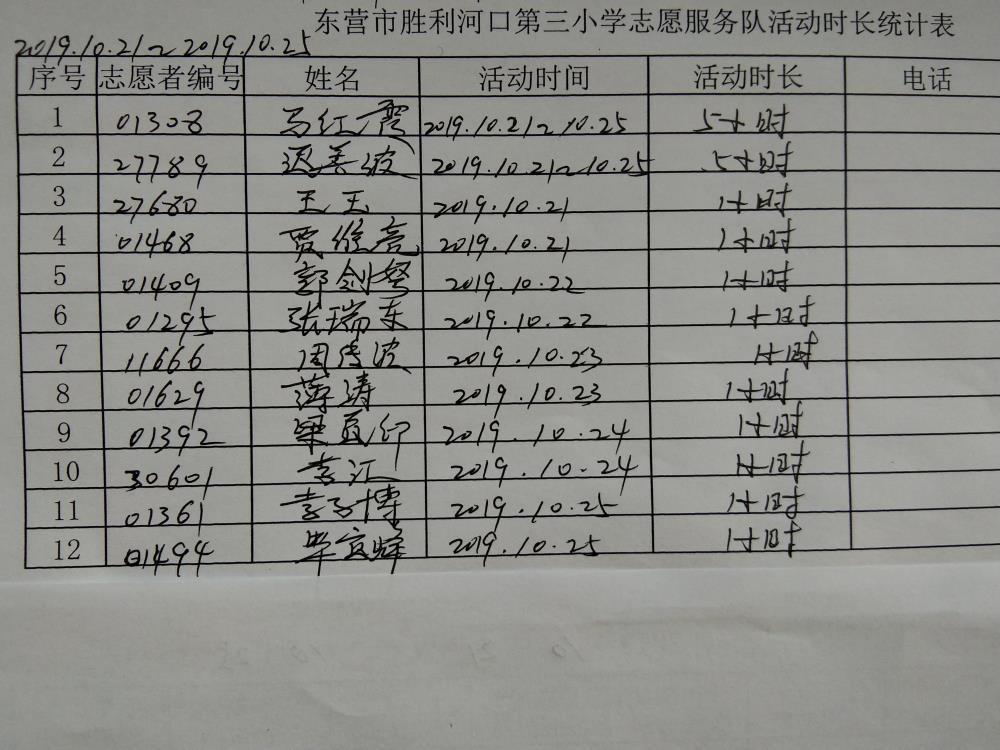 东营市胜利河口第三小学志愿服务队活动时长统计表
2019.10.21~2019.10.25
序号 志愿者编号 姓名 活动时间 活动时长 电话
1 01308 马红霞 2019.10.21~10.25 5小时
2 27789 迟善波 2019.10.21~10.25 5小时
3 27680 王玉 2019.10.21 1小时
4 01468 贾维亮 2019.10.21 1小时
5 01409 郭剑 2019.10.22 1小时
6 01295 张瑞东 2019.10.22 1小时
7 11666 周传波 2019.10.23 1小时
8 01629 薄涛 2019.10.23 1小时
9 01392 梁 印 2019.10.24 1小时
10 30601 李江 2019.10.24 1小时
11 01361 李子博 2019.10.25 1小时
12 01494 毕 辉 2019.10.25 1小时